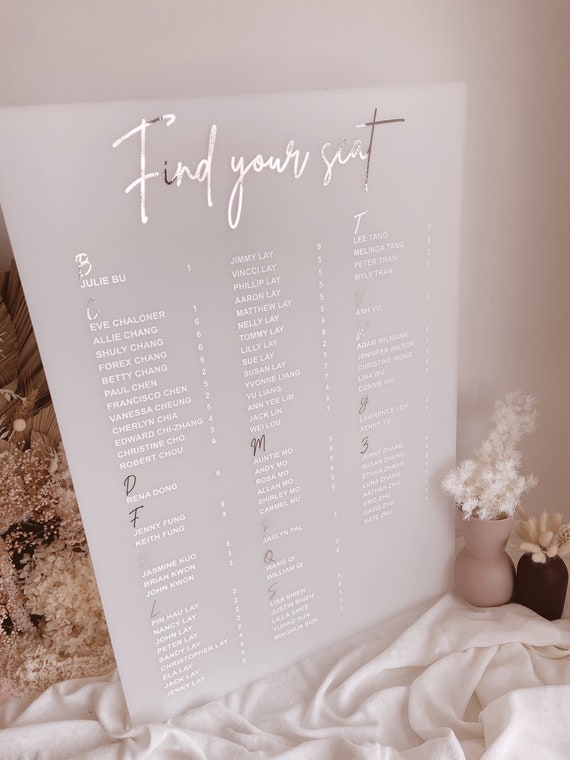 Find your seat
B
JULIE BU 1
C
EVE CHALONER 1
ALLIE CHANG 6
SHULY CHANG 6
FOREX CHANG 6
BETTY CHANG 6
PAUL CHEN 2
FRANCISCO CHEN 5
VANESSA CHEUNG 2
CHERLYN CHIA 5
EDWARD CHI-ZHANG 4
CHRISTINE CHO 3
ROBERT CHOU 9
D
RENA DONG 6
F
JENNY FUNG 9
KEITH FUNG 9
K
JASMINE KUO 8
BRIAN KWON 3
JOHN KWON 3
L
PIN HAU LAY 2
NANCY LAY 2
JOHN LAY 2
PETER LAY 2
SANDY LAY
CHRISTOPHER LAY 4
ELA LAY 4
JACK LAY 9
JENNY LAY 9
JIMMY LAY 9
VINCCI LAY 5
PHILLIP LAY 5
AARON LAY 5
MATTHEW LAY 5
NELLY LAY 5
TOMMY LAY 6
LILLY LAY 2
SUE LAY
SUSAN LAY
YVONNE LIANG 7
YU LIANG 7
ANN YEE LIM 4
JACK LIN 6
WEI LOU 1
M
AUNTIE MO 8
ANDY MO 8
ROSA MO 8
ALLAN MO 8
SHIRLEY MO 8
CARMEL MU
P
JASLYN PAL 3
Q
WANG QI
WILLIAM QI
S
LISA SHIEH
JUSTIN SHIEH
LILLA SMEE
YUHAO SUN
MINGHUA SUN
T
LEE TANG 7
MELINDA TANG 3
PETER TRAN 3
MYLY TRAN 8
V
ANH VU 3
W
ADAM WILMANN
JENNIFER WILSON
CHRISTINE WONG
LINA WU
CONNIE WU
Y
LAWRENCE YEH
JENNY YU
Z
JENNY ZHANG
SUSAN ZHANG
ETHAN ZHANG
LUNA ZHANG
NATHAN ZHU
ERIC ZHU
DAVID ZHU
KATE ZHU